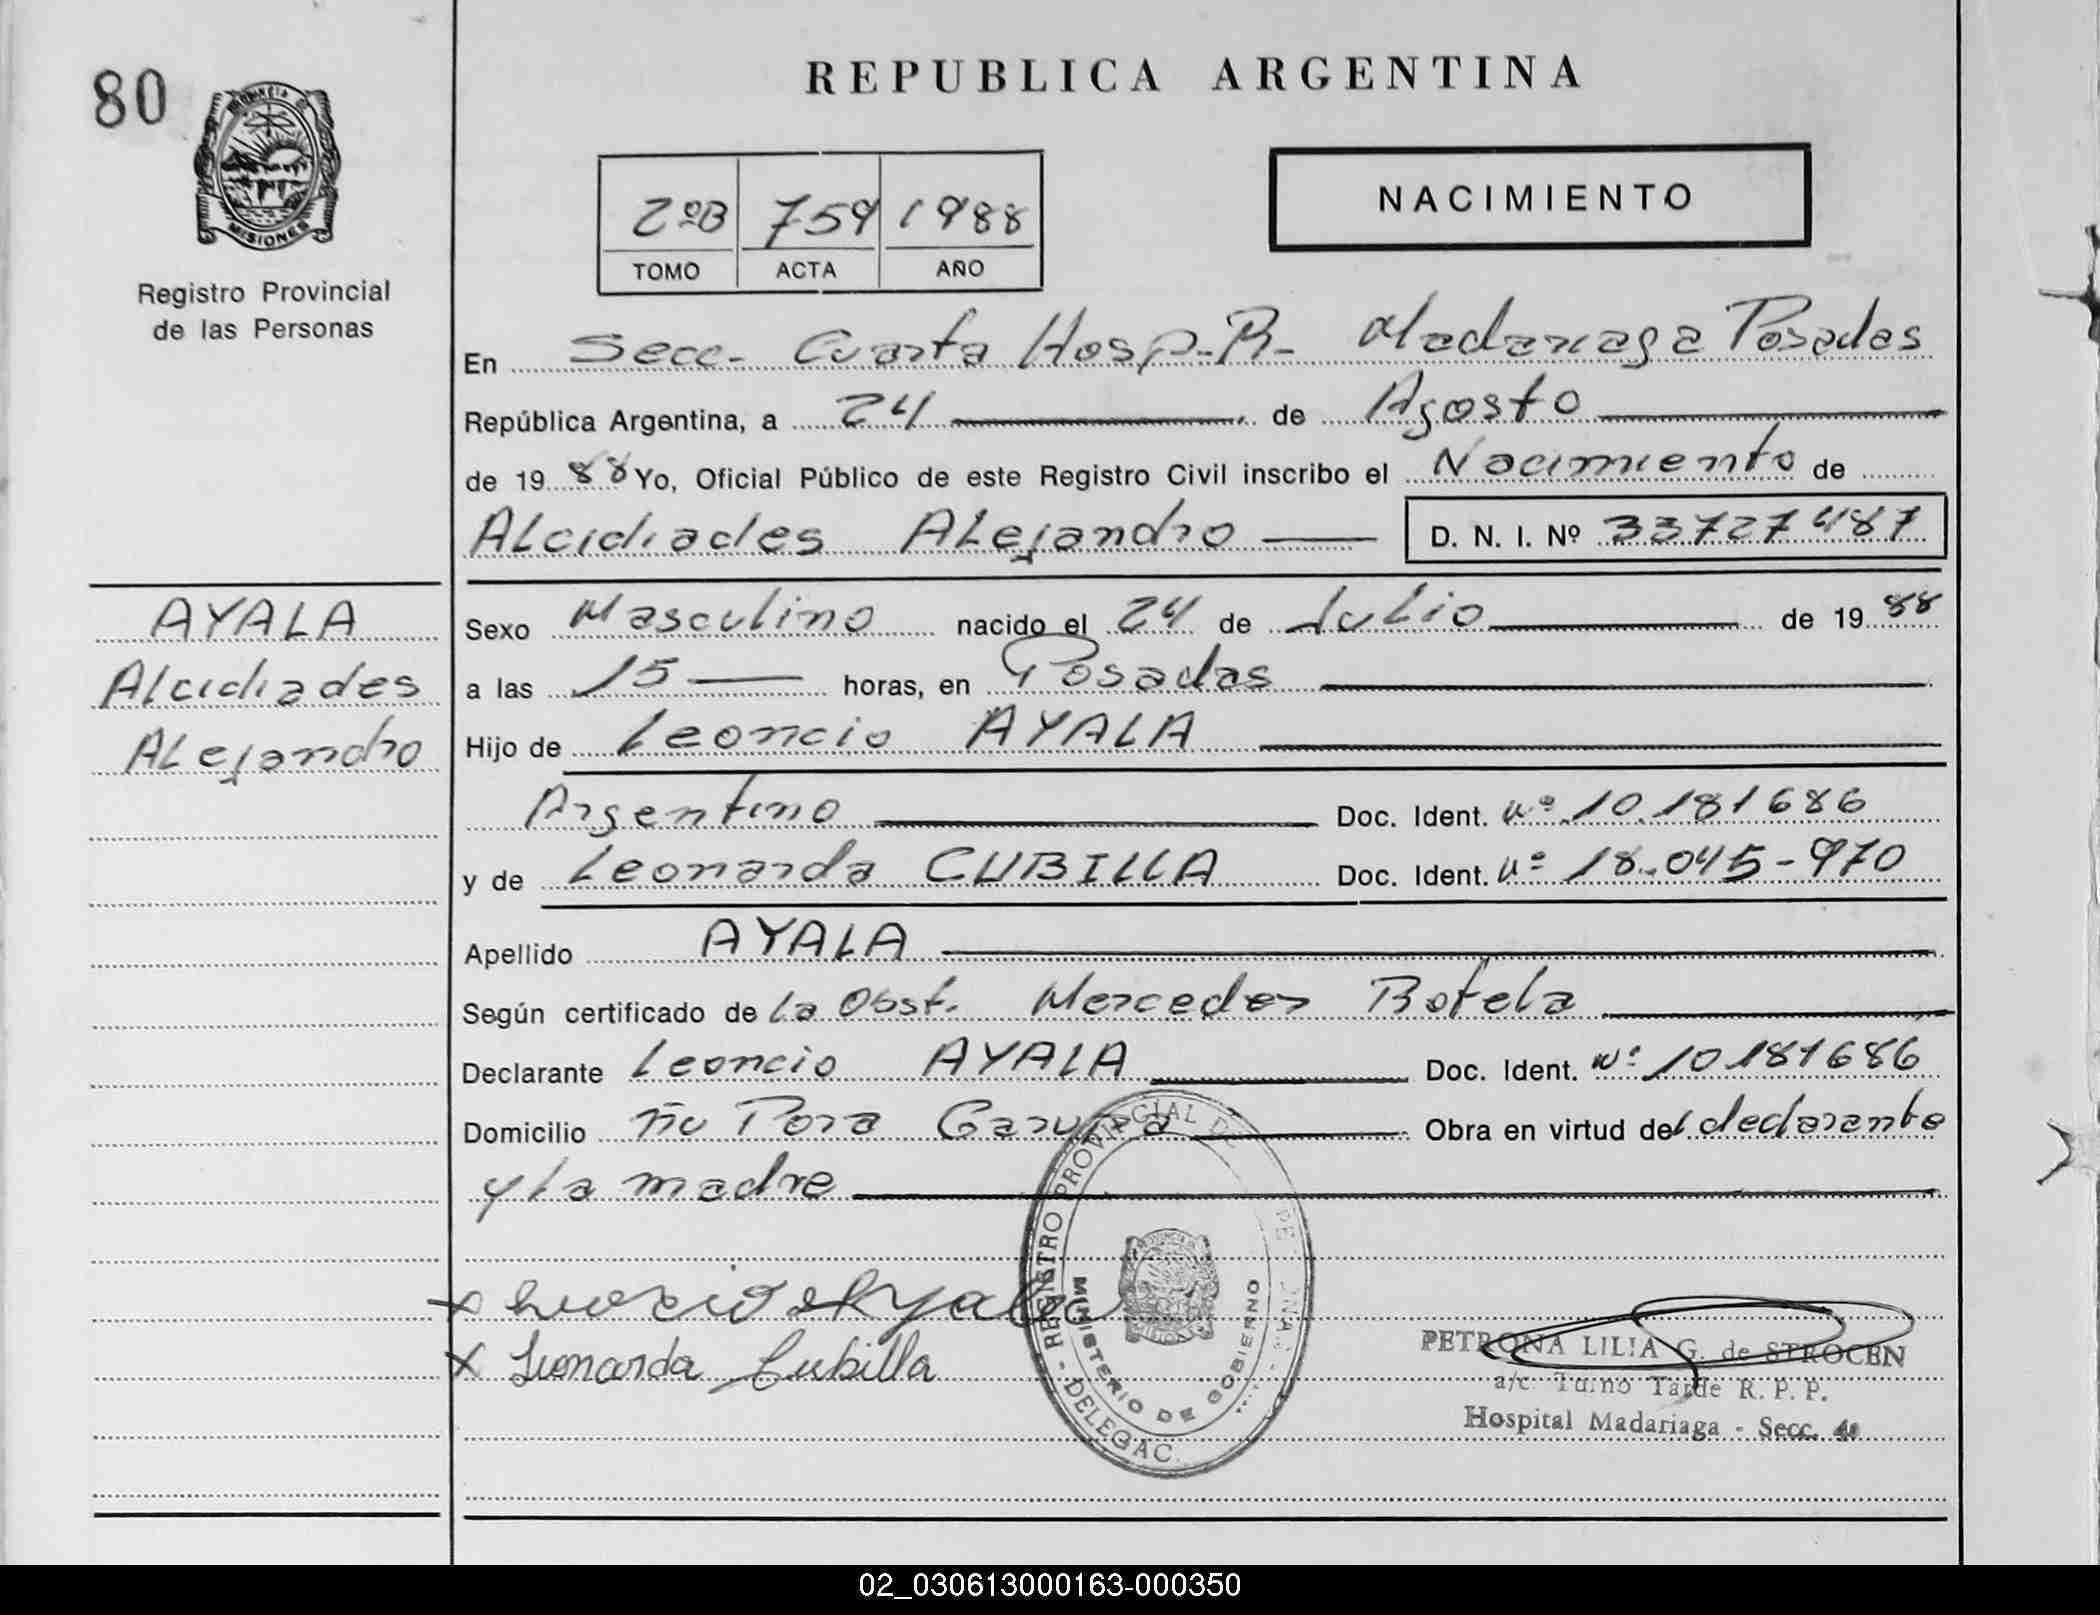 80
PROVINCIA DE
MISIONES
Registro Provincial
de las Personas
REPUBLICA ARGENTINA
2ºB 759 1988
TOMO ACTA AÑO
NACIMIENTO
En Secc. Cuarta Hosp. R. Madariaga Posadas
República Argentina, a 24 de Agosto
de 1988 Yo, Oficial Público de este Registro Civil inscribo el Nacimiento de
Alcidiades Alejandro D. N. I. Nº 33727487
AYALA
Alcidiades
Alejandro
Sexo Masculino nacido el 24 de Julio de 1988
a las 15 horas, en Posadas
Hijo de Leoncio AYALA
Argentino Doc. Ident. nº 10.181686
y de Leonarda CUBILLA Doc. Ident. nº 18.045-970
Apellido AYALA
Según certificado de la Obst. Mercedes Botela
Declarante Leoncio AYALA Doc. Ident. Nº 10181686
Domicilio Ñu Pora Garupa Obra en virtud del declarante
y la madre
x Leoncio Ayala
x Leonarda Cubilla
REGISTRO PROVINCIAL DE - DELEGAC.
MINISTERIO DE GOBIERNO
PETRONA LILIA G. de STROCEN
a/c Turno Tarde R. P. P.
Hospital Madariaga - Secc.
02_030613000163-000350